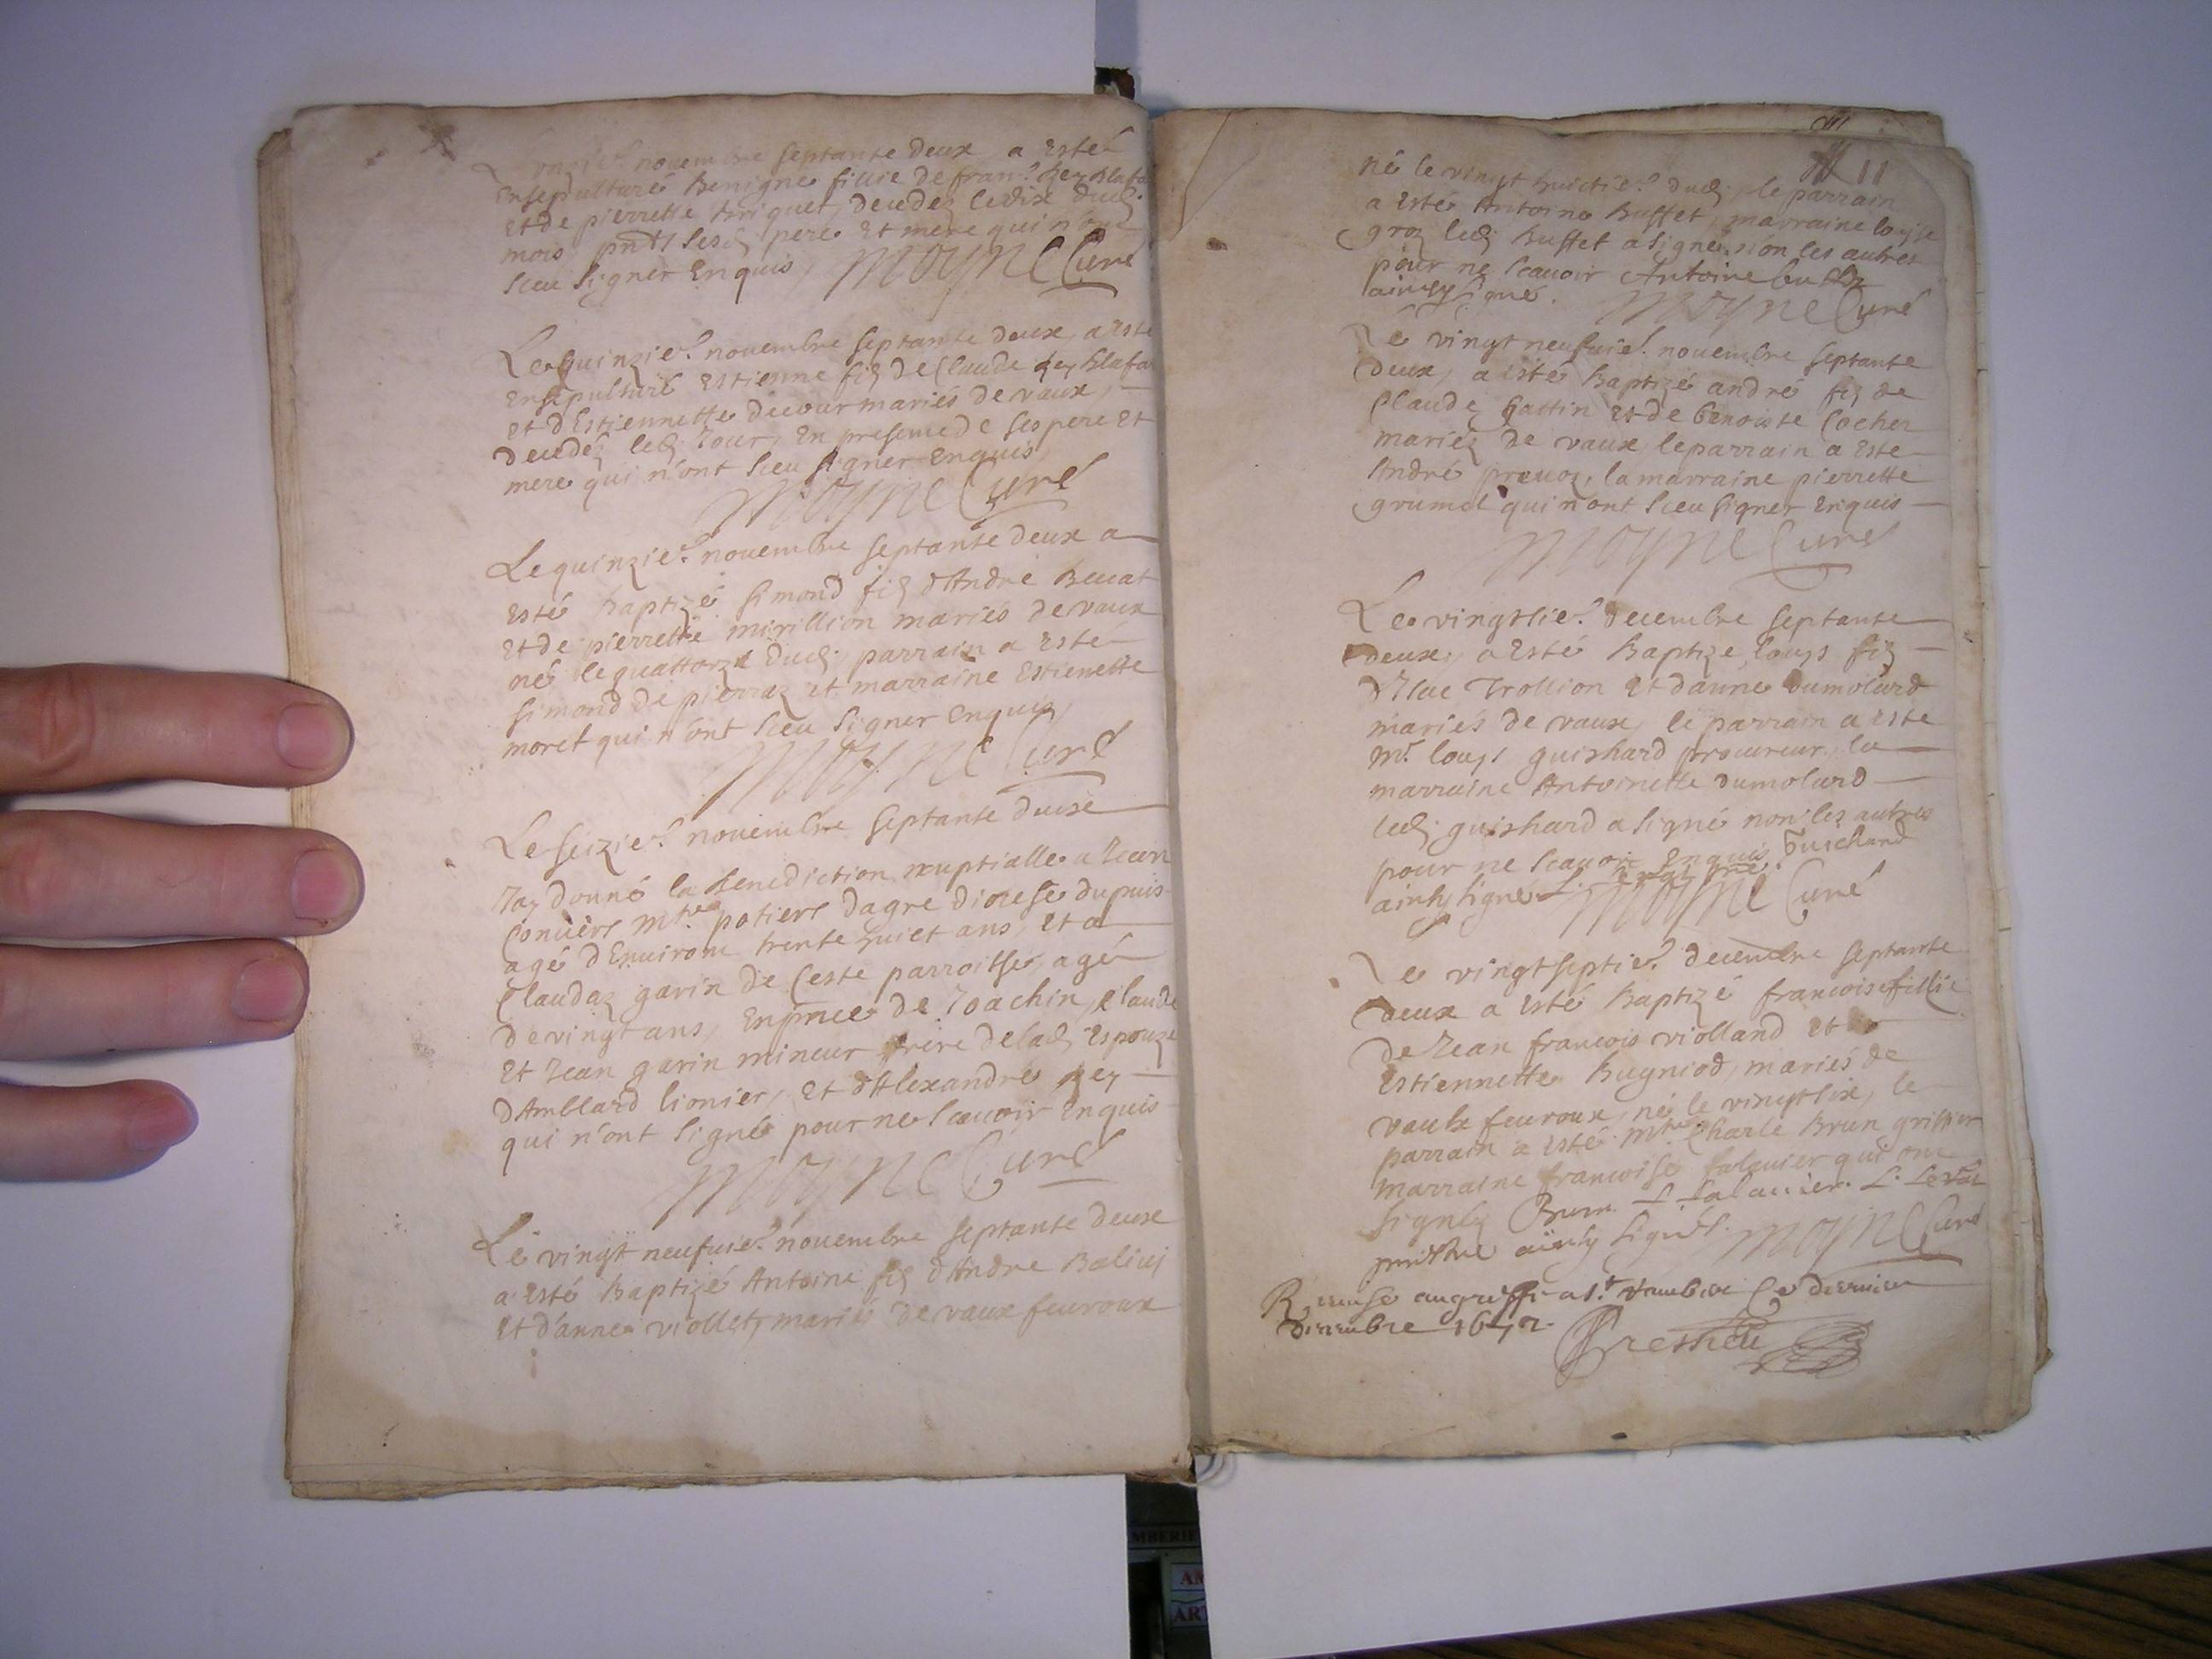 L'onzie. novembre septante deux a esté
Ensepulturé Benigne fillie de
et de pierrette briquet, decedez le dix dud.
mois pnts lesd. pere et mere qui n'ont
sceu signer Enquis, Moyne Curé
Le quinzie. novembre septante deux a esté
Ensepulturé Estienne fiz de Claude
et d'Estiennette decour mariés de vaux,
decedéz led. Jour, En presence de ses pere et
mere qui n'ont sceu signer Enquis,
Moyne Curé
Le quinzie. novembre septante deux a
esté baptizé simond fiz d'André
et de pierrette mirillion mariés de vaux
né le quattorze dud. parrain a esté
simond de pierraz et marraine Estienette
moret qui n'ont sceu signer enquis,
Moyne Curé
Le seizie. novembre septante deux
J'ay donné la benediction nuptialle a Jean
Convers mtre potiere dagre diocese dupuis
agé d'Environ trente huict ans, et a
Claudaz garin de Ceste parroisse, agé
de vingt ans, En pnce de Joachin, claude
et Jean garin mineur frere de lad. Espouze
d'Amblard lionier, et d'Alexandre Rey
qui n'ont signé pour ne scavoir Enquis
Moyne Curé
Le vingt neufvie. novembre septante deux
a esté baptizé Antoine fiz d'André
et d'anne viollet, mariés de vaux fevroux
11
né le vingt huictie. dud. le parrain
a esté Antoine Buffet, marraine loyse
groz led. Buffet a signé, non les autres
pour ne scavoir Antoine buffet
ainsy signé. Moyne Curé
Le vingt neufvie. novembre septante
deux, a esté baptizé andré fiz de
Claude gattin et de benoiste Cocher
mariéz de vaux, le parrain a esté
André prevoz, la marraine pierrette
grumel qui n'ont sceu signer Enquis
Moyne Curé
Le vingtsie. decembre septante
deux, a esté baptize louys fiz
Trollion et d'anne dumolard
mariés de vaux, le parrain a esté
mr. louys guishard procureur, la
marraine Antoinette dumolard
led. guishard a signé non les autres
pour ne scavoir Enquis, Guichard
ainsy signé Moyne Curé
Le vingtseptie. decembre septante
deux a esté baptizé francoise fillie
de Jean francois violland et
Estiennette Bugniod, mariés de
vaulx fevroux, né le vingtsix, le
parrain a esté mtre Charle Brun griffier
marraine francoise falquier qui ont
signéz Brun
ainsy signés. Moyne Curé
Remise au greffe a St. rambert le dernier
decembre 1672.